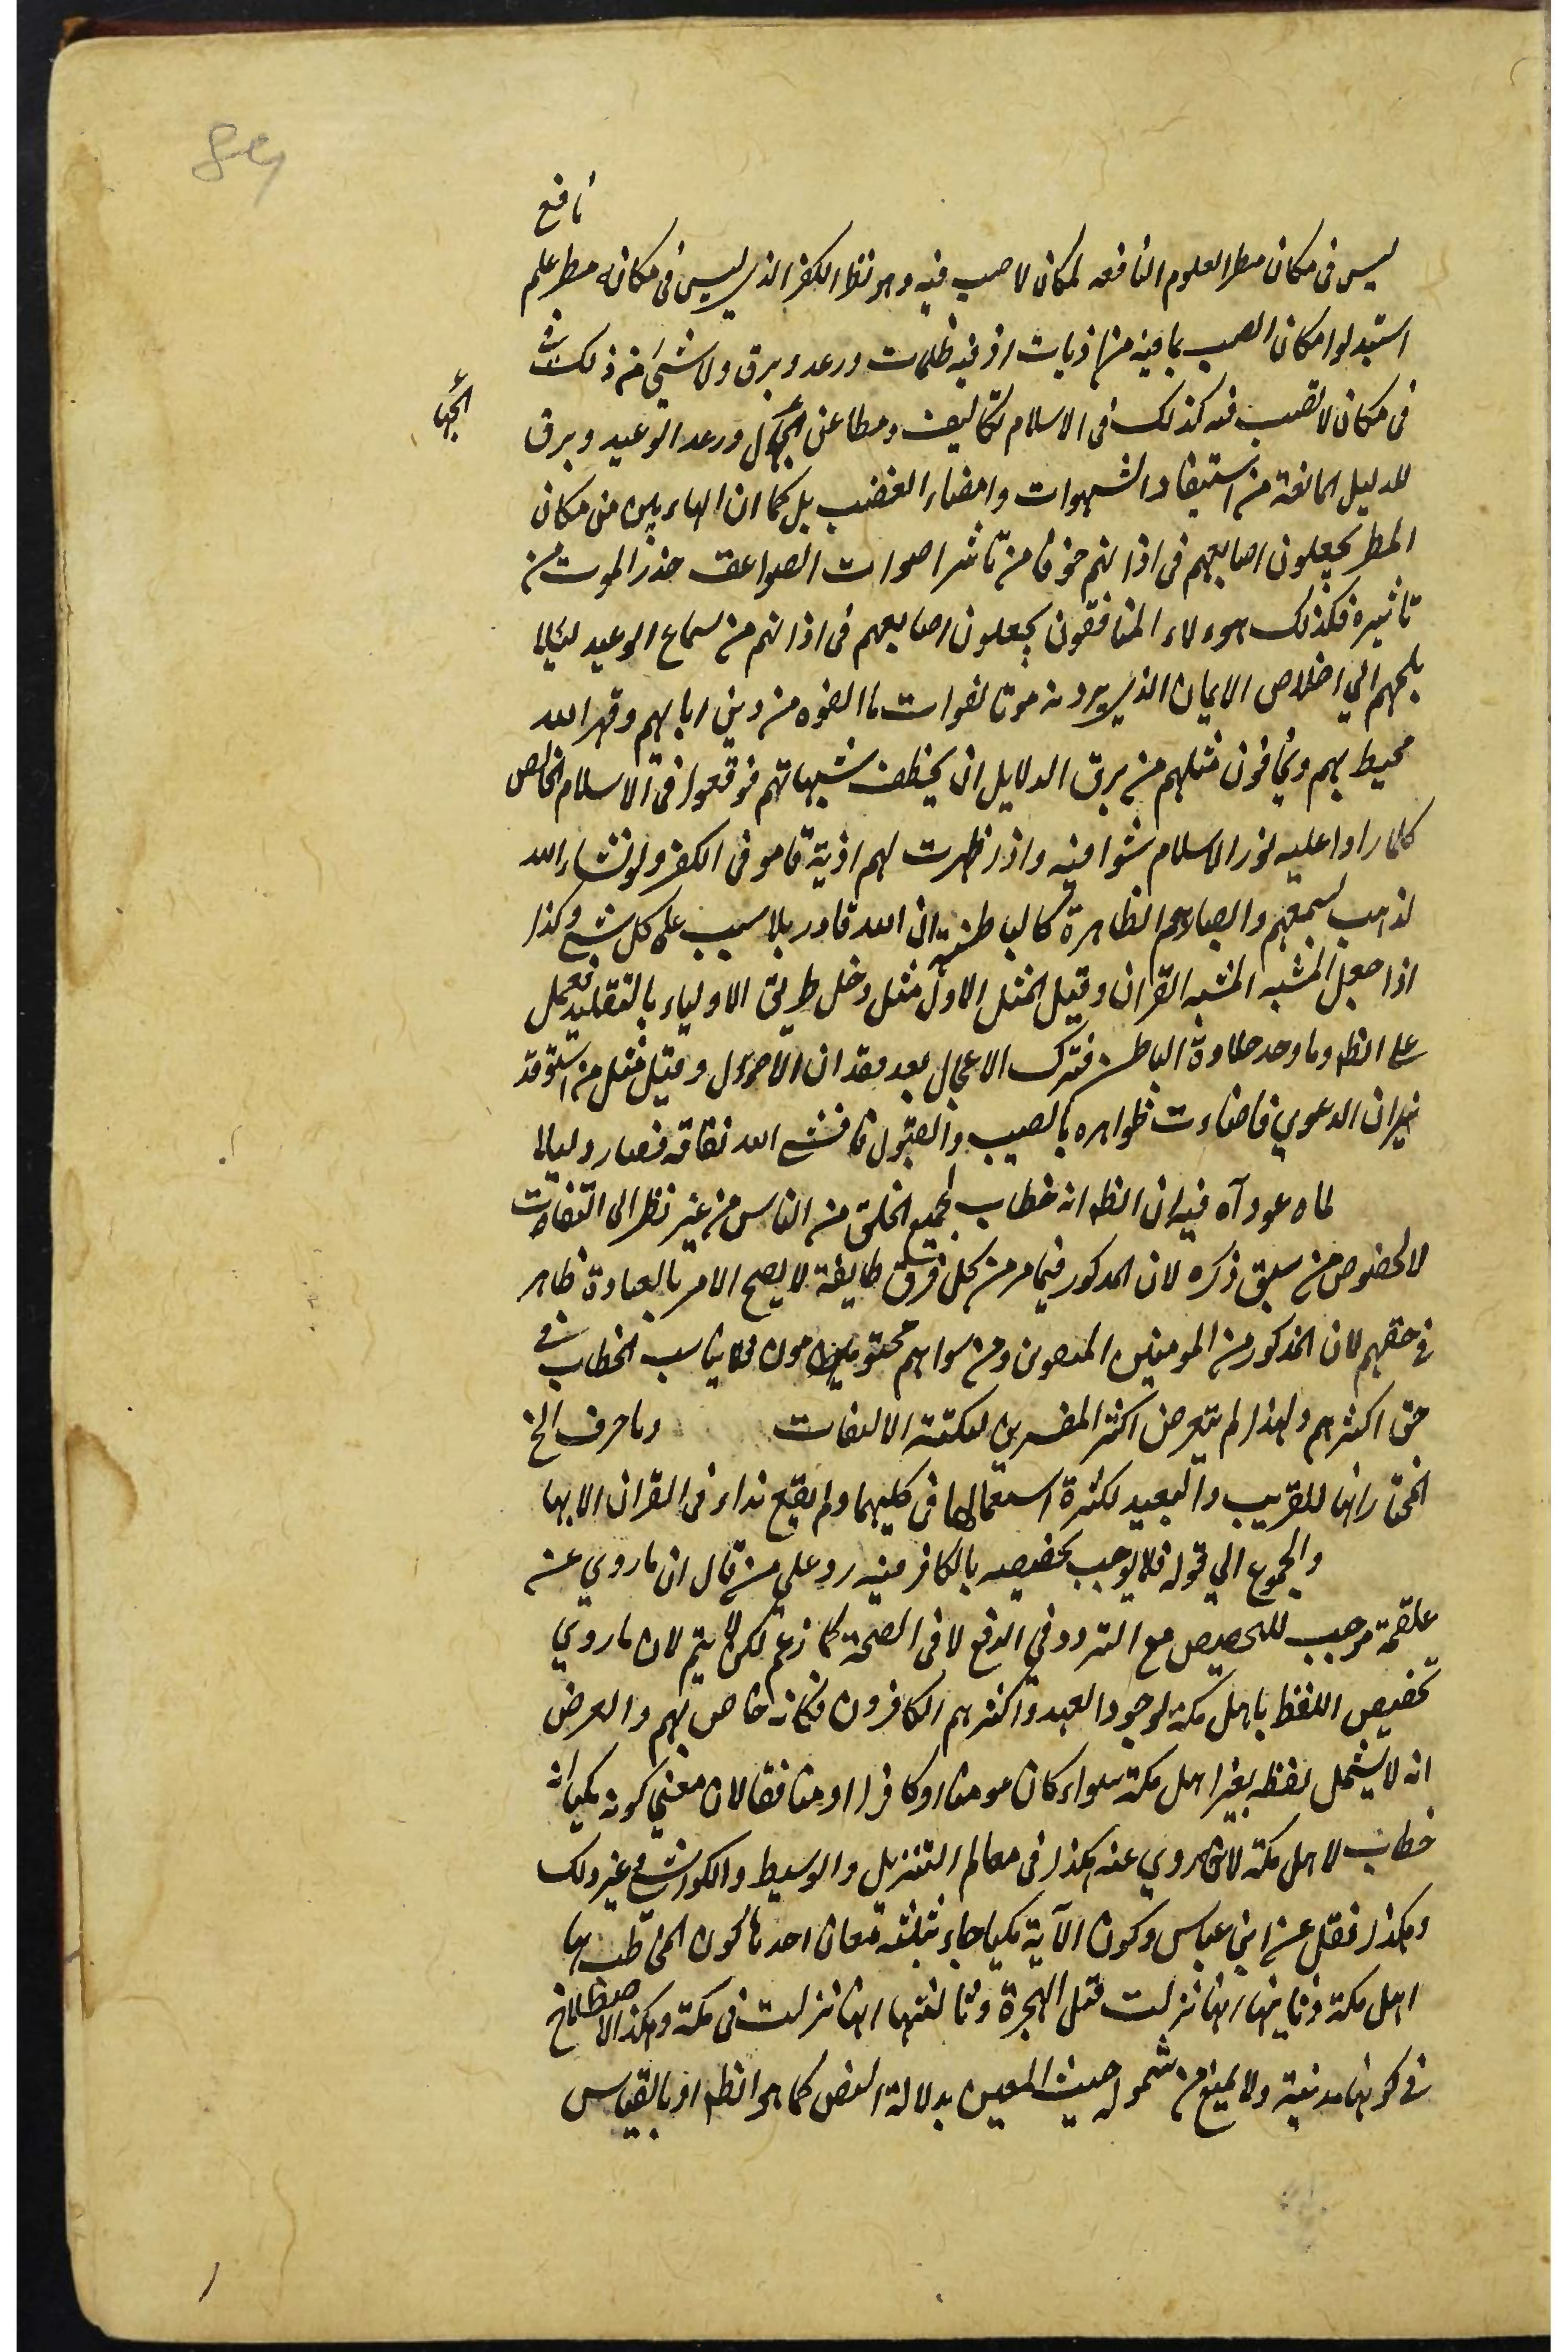 نافع
ليس فى مكان مطر العلوم النافعه لمكان لا صيب فيه وهو نظر الكفر الذى ليس فى مكانه مطر علم
استبدلوا مكان الصيب بما فيه من اذيات اذ فيه ظلمات ورعد وبرق ولا شئ من ذلك
الجها
فى مكان لا نصيب فيه كذلك فى الاسلام تكاليف ومطاعن الجهال ورعد الوعيد وبرق
الدليل المانعة من استيفاء الشهوات وامضاء الغضب بل كما ان الهاربين من مكان
المطر يجعلون اصابعهم فى اذانهم خوفا من تاثير اصوات الصواعق حذر الموت من
تاثيره فكذلك هؤلاء المنافقون يجعلون اصابعهم فى اذانهم من سماع الوعيد ليلا
يلجهم الي اخلاص الايمان الذى يرونه موتا لفوات ما الفوه من دين ابائهم وقهر الله
محيط بهم ويخافون مثلهم من برق الدلايل ان يخطف شبهاتهم فوقعوا فى الاسلام الخالص
كلما راوا عليه نور الاسلام مشوا فيه واذا ظهرت لهم اذية قاموا فى الكفر ولو شاء الله
لذهب بسمعهم وابصارهم الظاهرة كالباطنة ان الله قادر بلا سبب على كل شئ وكذا
اذا جعل المشبه المشبه القران وقيل المثل الاول مثل دخل طريق الاولياء بالتقليد فعمل
على الظه وما وجد حلاوة الباطن فترك الاعمال بعد فقدان الاحوال وقيل مثل من استوقد
نيران الدعوي فاضاءت ظواهره بالصيب والقبول فافشى الله نفاقه فصار ولياللا
لماه عود آه فيه ان الظه انه خطاب لجميع الخلق من الناس من غير نظر الى التفات
لا لخصوص من سبق ذكره لان المذكور فيما مر من كل فرق طايفة لا يصح الامر بالعبادة ظاهر
فى حقهم لان المذكور من المومنين المتصون ومن سواهم محتومون فلا يناسب الخطاب فى
حق اكثرهم ولهذا لم يتعرض اكثر المفسرين لنكتة الالتفات وما حرف الخ
المختار انها للقريب والبعيد لكثرة استعمالها فى كليهما ولم يقع نداء فى القران الا بها
والجموع الي قوله فلا يوجب تخصيصه بالكافر فيه رد على من قال ان ما روي عن
علقمة موجب للتخصيص مع التردد في الرفع لا فى الصحة كما زعم لكن لا يتم لان ما روي
تخصيص اللفظ باهل مكة لوجود العهد واكثرهم الكافرون فكانه خاص بهم والعرض
انه لا يشمل لفظه بغير اهل مكة سواء كان مومنا او كافرا او منافقا لان معني كونه مكيا انه
خطاب لاهل مكة لانه روي عنه هكذا فى معالم التنزيل والوسيط والكواشي وغير ذلك
وهكذا نقل عن ابن عباس وكون الآية مكيا جاء بثلثة معان احدها كون المخاطب بها
اهل مكة وثانيها انها نزلت قبل الهجرة وثالثتها انها نزلت فى مكة وهكذا الاصطلاح
فى كونها مدنية ولا يمنع من شموله حيث المعين بدلالة النص كما هو الظه او بالقياس